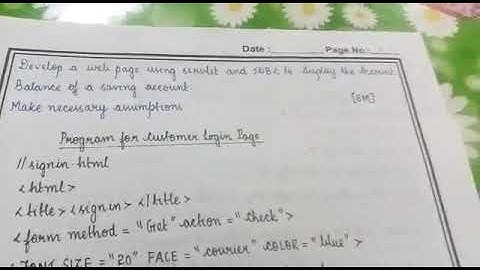 Date : Page No :
Develop a web page using servlet and JDBC to display the Account
Balance of a saving account.
[8M]
Make necessary assumptions
Program for Customer Login Page
//signin.html
<html>
<title> <signin> </title>
<form method = "Get" action = "check">
<FONT SIZE = "20" FACE = "courier" COLOR = "blue">